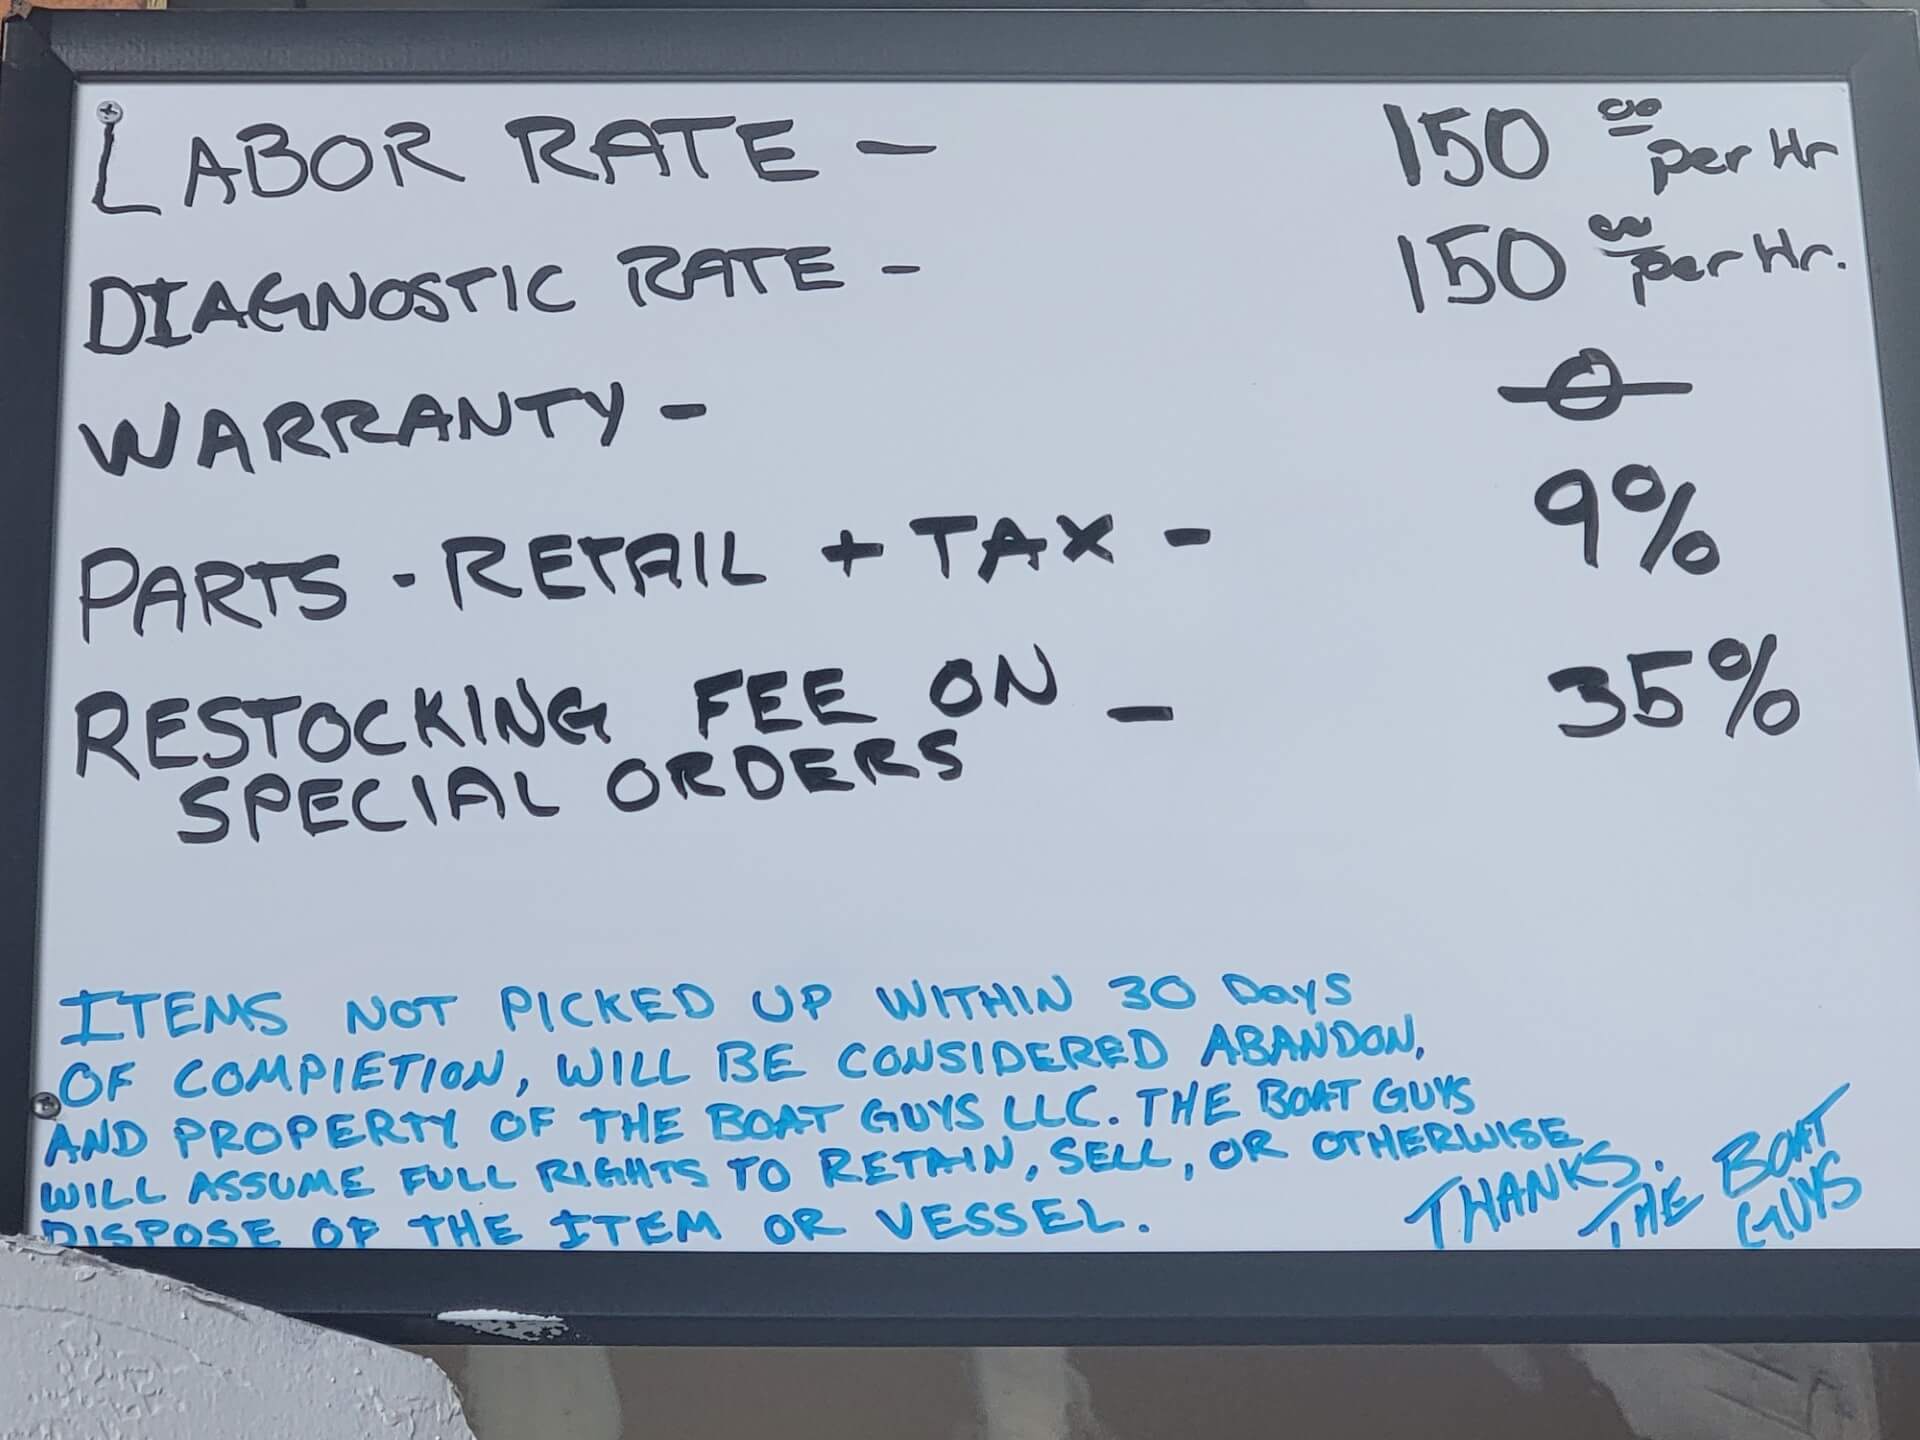 LABOR RATE - 150 00 per Hr
DIAGNOSTIC RATE - 150 00 per Hr.
WARRANTY - 0
PARTS - RETAIL + TAX - 9%
RESTOCKING FEE ON - 35%
SPECIAL ORDERS
ITEMS NOT PICKED UP WITHIN 30 DAYS
OF COMPLETION, WILL BE CONSIDERED ABANDON,
AND PROPERTY OF THE BOAT GUYS LLC. THE BOAT GUYS
WILL ASSUME FULL RIGHTS TO RETAIN, SELL, OR OTHERWISE
DISPOSE OF THE ITEM OR VESSEL.
THANKS.
THE BOAT
GUYS